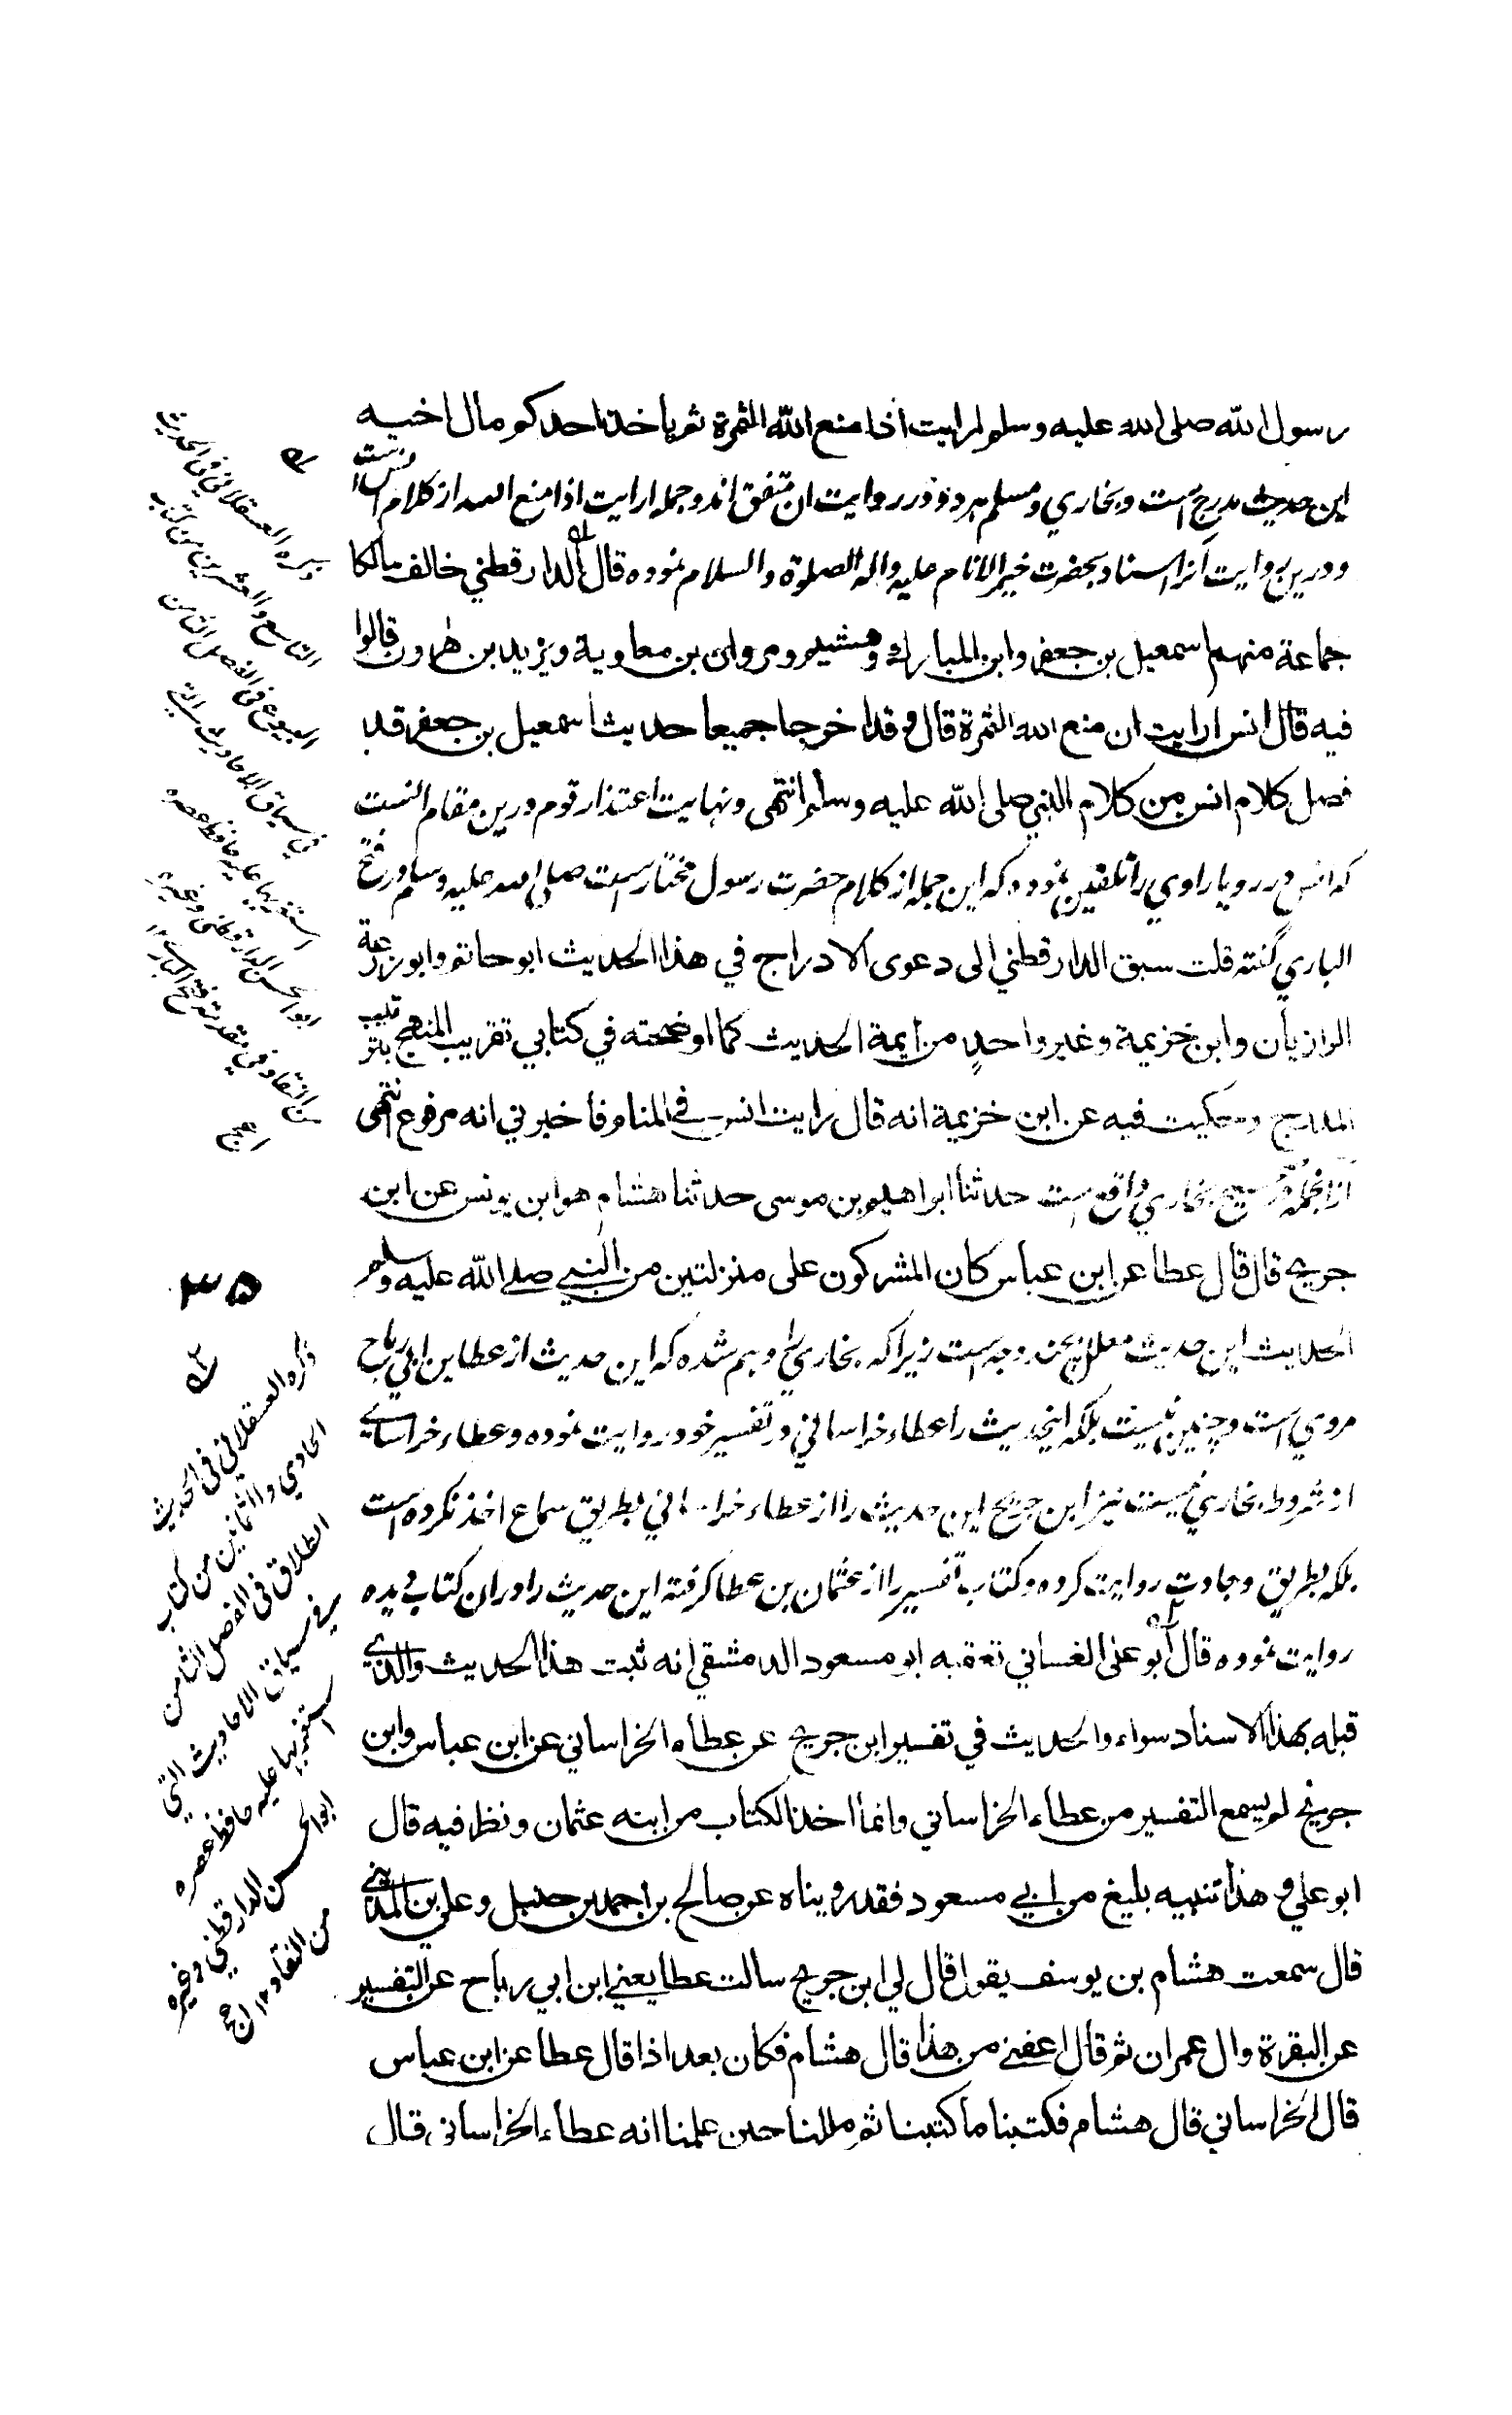 رسول الله صلى الله عليه وسلم ارايت اذا منع الله الثمرة ثم ياخذ احدكم مال اخيه
اين حديث مدرج است وبخاري ومسلم هر دو در روايت ان متفق اند وجمله ارايت اذا منع الله از كلام انس است
ودرين روايت انرا اسناد بحضرت خير الانام عليه واله الصلوة والسلام نموده قال الدارقطني خالف مالكا
جماعة منهم اسمعيل بن جعفر وابن المبارك وهشيم ومروان بن معاوية ويزيد بن هارون قالوا
فيه قال انس ارايت ان منع الله الثمرة قال وقد اخرجا جميعا حديث اسمعيل بن جعفر قد
فصل كلام انس من كلام النبي صلى الله عليه وسلم انتهى ونهايت اعتذار قوم درين مقام انست
كه انس در رويا راوي را تلقين نموده كه اين جمله از كلام حضرت رسول مختار است صلى الله عليه وسلم در فتح
الباري گفته قلت سبق الدارقطني الى دعوى الادراج في هذا الحديث ابو حاتم وابو زرعة
الرازيان وابن خزيمة وغير واحد من ايمة الحديث كما اوضحته في كتابي تقريب المنهج بترتيب
المدرج وحكيت فيه عن ابن خزيمة انه قال رايت انس في المنام فاخبرني انه مرفوع انتهى
ازانجمله در صحيح بخاري واقع است حدثنا ابراهيم بن موسى حدثنا هشام هو ابن يونس عن ابن
جريج قال قال عطا عن ابن عباس كان المشركون على منزلتين من النبي صلى الله عليه وسلم
الحديث اين حديث معلل بچند وجه است زيراكه بخاري را وهم شده كه اين حديث از عطا بن ابي رباح
مروي است وچنين نيست بلكه اينحديث را عطاء خراساني در تفسير خود روايت نموده وعطاء خراساني
از شروط بخاري نيست نيز ابن جريج اين حديث را از عطاء خراساني بطريق سماع اخذ نكرده است
بلكه بطريق وجادت روايت كرده وكتاب تفسير را از عثمان بن عطا گرفته اين حديث را دران كتاب ديده
روايت نموده قال ابو على الغساني تعقبه ابو مسعود الدمشقي انه ثبت هذا الحديث والذي
قبله بهذا الاسناد سواء والحديث في تفسير ابن جريج عن عطاء الخراساني عن ابن عباس وابن
جريج لم يسمع التفسير من عطاء الخراساني وانما اخذ الكتاب من ابنه عثمان ونظر فيه قال
ابو علي وهذا تنبيه بليغ من ابي مسعود فقد روينا عن صالح بن احمد بن حنبل وعلي بن المديني
قال سمعت هشام بن يوسف يقول قال لي ابن جريج سالت عطا يعني ابن ابي رباح عن التفسير
عن البقرة وال عمران ثم قال اعفني من هذا قال هشام فكان بعد اذا قال عطا عن ابن عباس
قال الخراساني قال هشام فكتبنا ما كتبنا ثم مللنا حين علمنا انه عطاء الخراساني قال
ذكره العسقلاني في الحديث
التاسع والعشرين من كتاب
البيوع في الفصل الثامن
في سياق الاحاديث التي
انتقدها عليه حافظ عصره
ابو الحسن الدارقطني وغيره
من النقاد في مقدمة فتح الباري ١٢
اعج
٣٥
ذكره العسقلاني في الحديث
الحادي والثمانين من كتاب
الطلاق في الفصل الثامن
في سياق الاحاديث التي
انتقدها عليه حافظ عصره
ابو الحسن الدارقطني وغيره
من النقاد ١٢ اعج